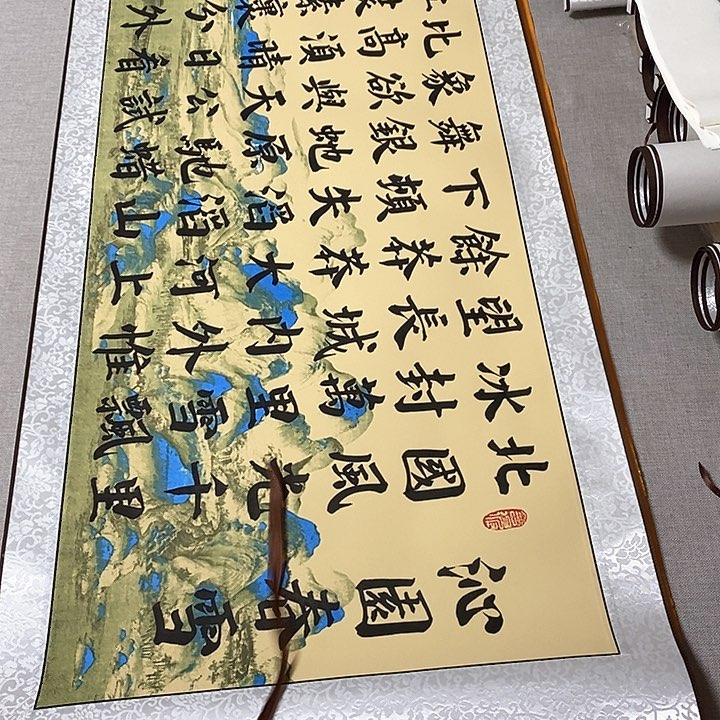 沁園春雪
北國風光千里
冰封萬里雪飄
望長城內外惟
餘莽莽大河上
下頓失滔滔山
舞銀蛇原馳蜡
象欲與天公試
比高須晴日看
裹分外